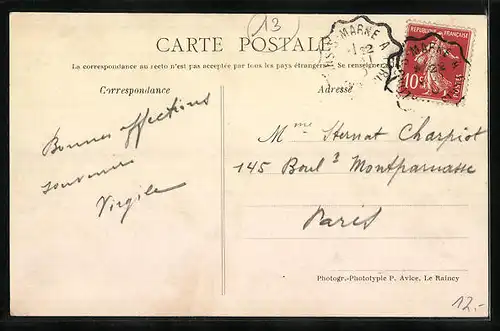 13
CARTE POSTALE
La correspondance au recto n'est pas acceptée par tous les pays étrangers. Se renseigner
Correspondance
Adresse
RÉPUBLIQUE FRANÇAISE
10c
POSTES
MARNE A
MARNE A
Bonnes affections
souvenirs
Virgile
Mme Sternat Charpiot
145 Boul d Montparnasse
Paris
Photogr.-Phototypie P. Avice, Le Raincy
12.-